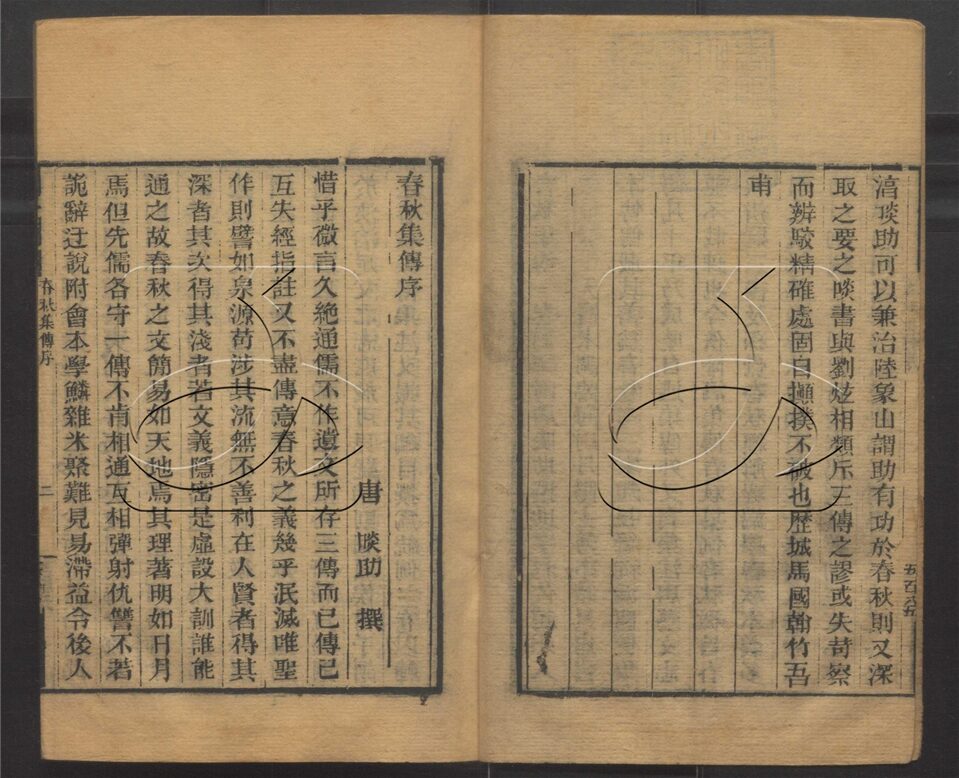 滈啖助可以兼治陸象山謂助有功於春秋則又深
取之要之啖書與劉炫相類斥三傳之謬或失苛察
而辨駮精確處固自擷撲不破也歴城馬國翰竹吾
甫
五百六五
春秋集傳序
唐 啖助 撰
惜乎微言久絶通儒不作遺文所存三傳而已傳已
互失經指註又不盡傳意春秋之義幾乎泯滅唯聖
作則譬如泉源苟涉其流無不善利在人賢者得其
深者其次得其淺者若文義隱密是虛設大訓誰能
通之故春秋之文簡易如天地焉其理著明如日月
焉但先儒各守一傳不肯相通互相彈射仇讐不若
詭辭迂說附會本學鱗雜米聚難見易滯益令後人
春秋集傳序
二